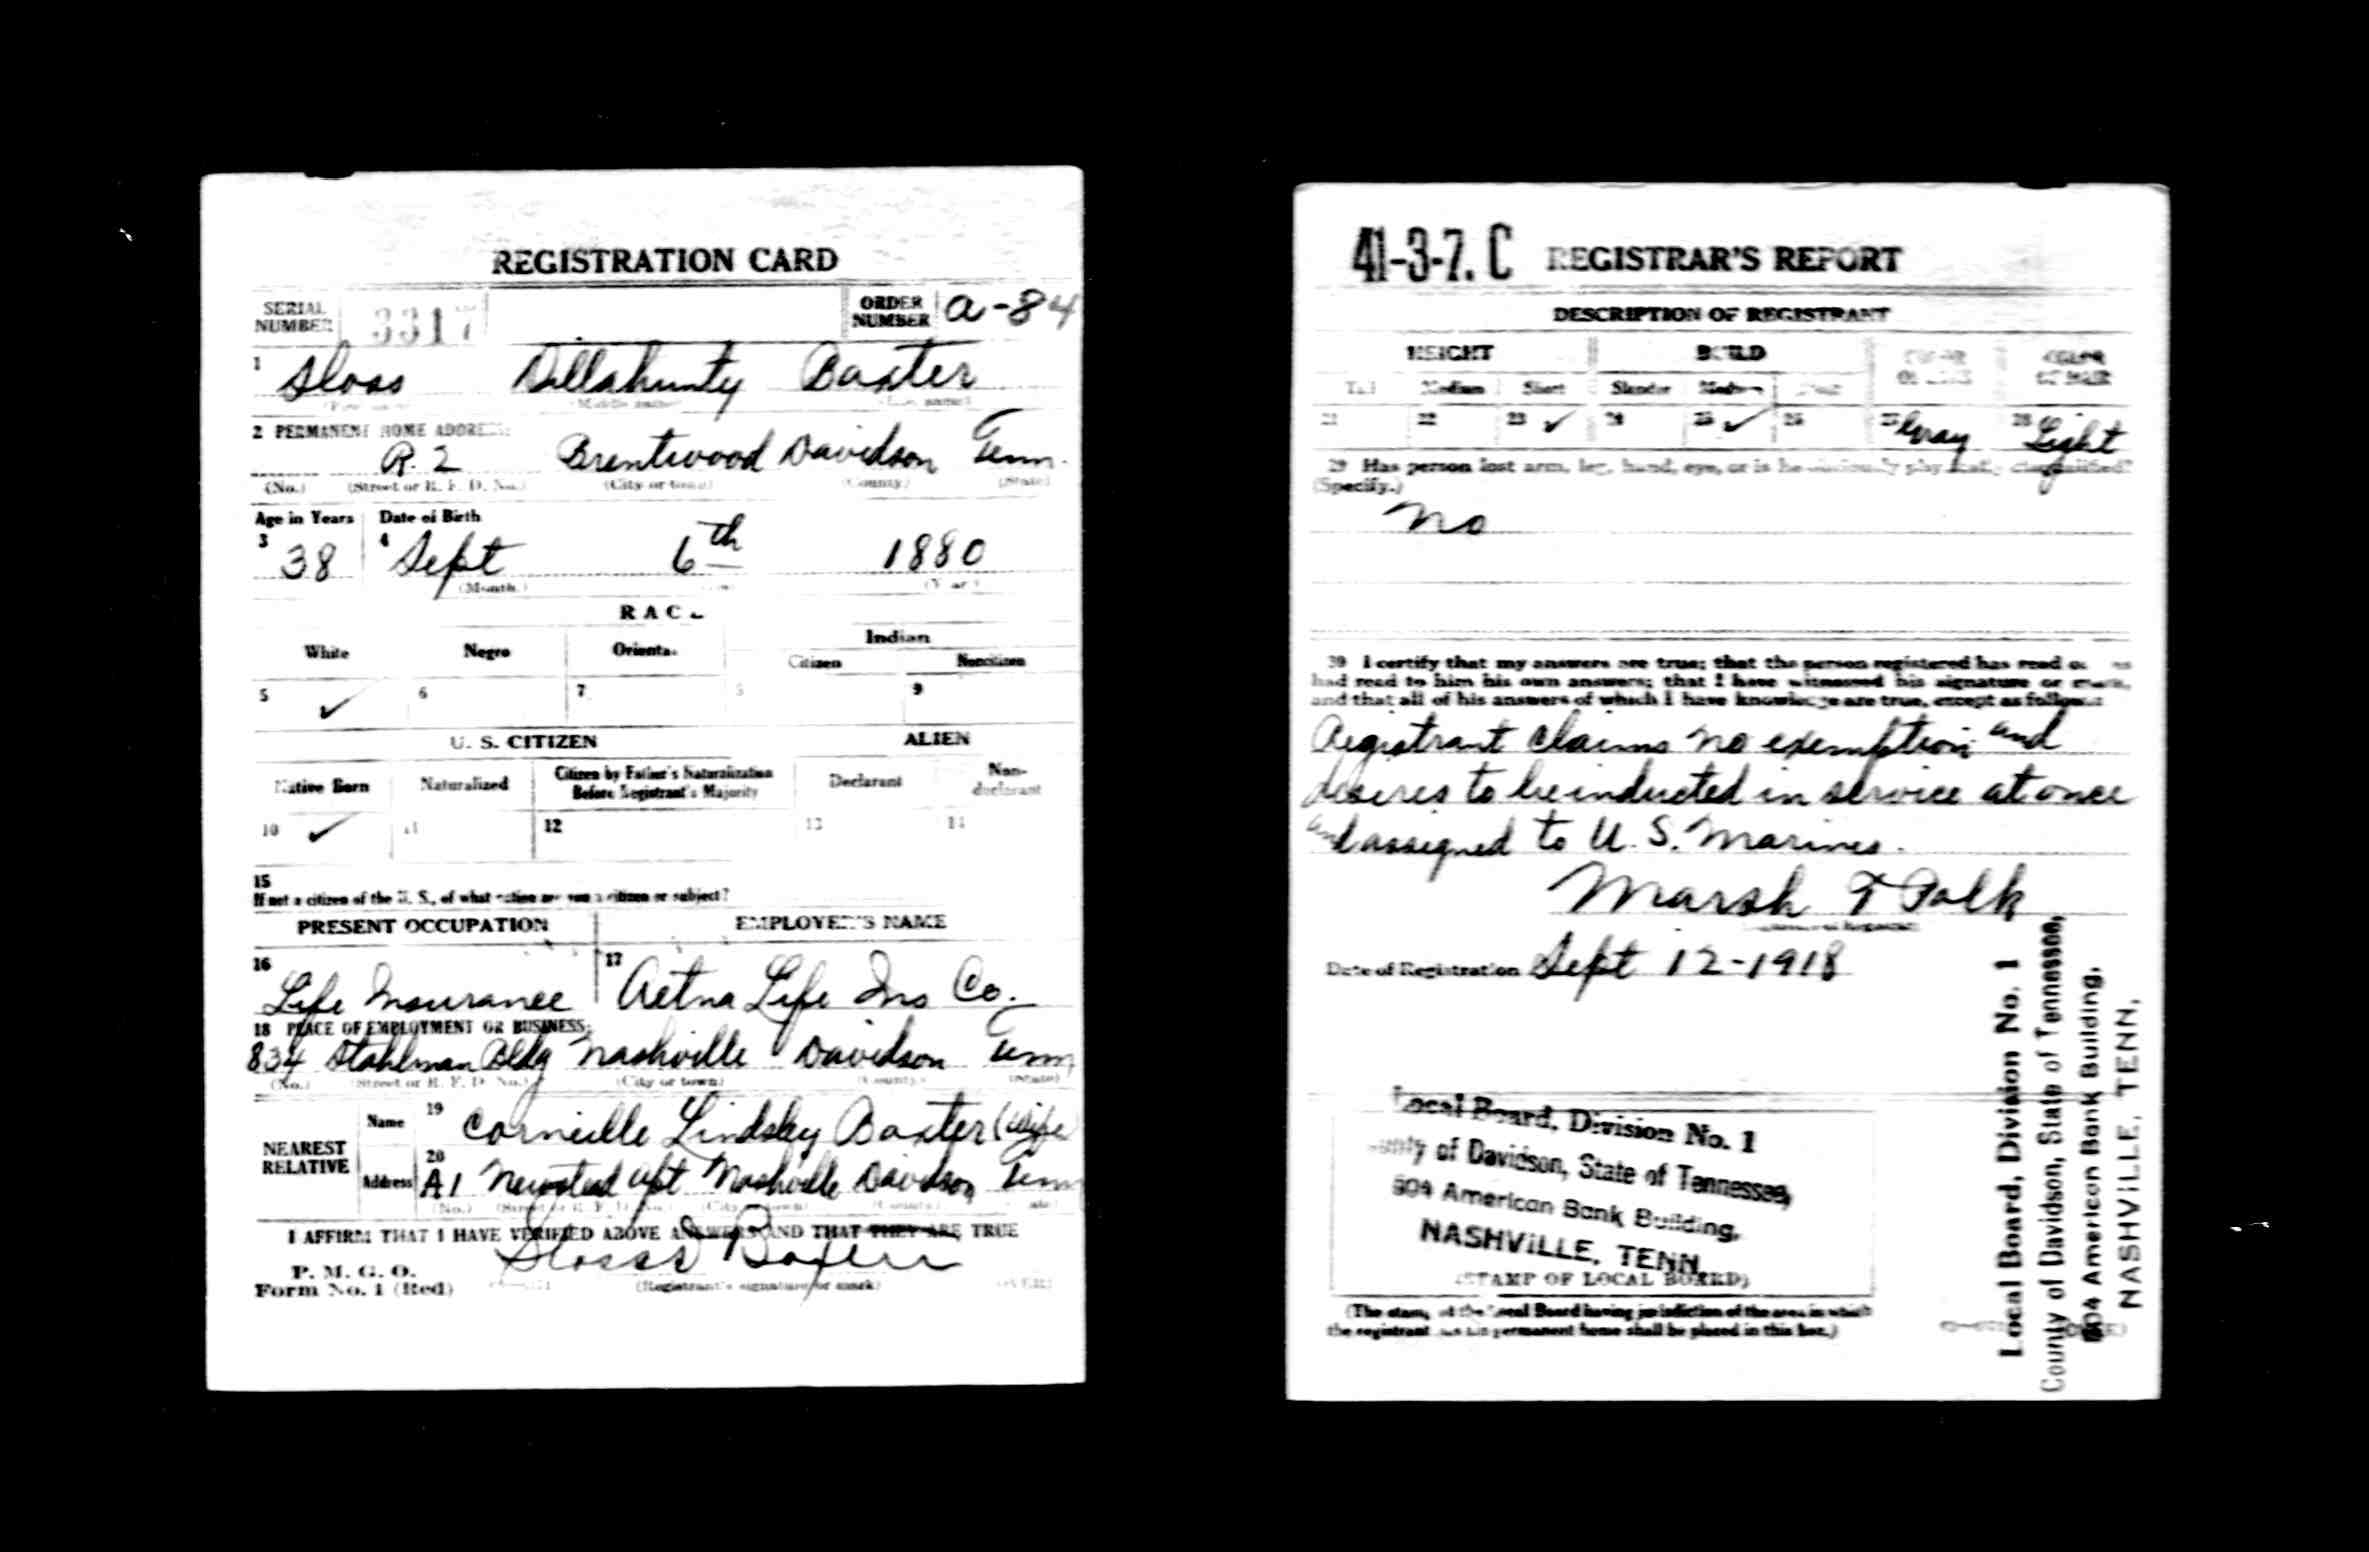 REGISTRATION CARD
SERIAL NUMBER 3317 ORDER NUMBER A-84
1 Sloss Dillahunty Baxter
(Middle name)
2 PERMANENT HOME ADDRESS:
R. 2 Brentwood Davidson Tenn.
(No.) (Street or R. F. D. No.) (City or town) (County) (State)
Age in Years Date of Birth
3 38 4 Sept 6th 1880
(Month.) (Year)
RACE
White Negro Oriental Indian
Citizen Noncitizen
5 ✓ 6 7 9
U. S. CITIZEN ALIEN
Native Born Naturalized Citizen by Father's Naturalization Before Registrant's Majority Declarant Non-declarant
10 ✓ 11 12 13 14
15
If not a citizen of the U. S., of what nation are you a citizen or subject?
PRESENT OCCUPATION EMPLOYER'S NAME
16 Life Insurance 17 Aetna Life Ins Co.
18 PLACE OF EMPLOYMENT OR BUSINESS:
834 Stahlman Bldg Nashville Davidson Tenn
(No.) (Street or R. F. D. No.) (City or town) (County) (State)
NEAREST RELATIVE
Name 19 Corneille Lindsley Baxter (Wife
Address 20 A1 Newstead Apt Nashville Davidson Tenn
I AFFIRM THAT I HAVE VERIFIED ABOVE ANSWERS AND THAT THEY ARE TRUE
P. M. G. O.
Form No. 1 (Red)
Sloss D Baxter
(Registrant's signature or mark) (OVER)
41-3-7. C REGISTRAR'S REPORT
DESCRIPTION OF REGISTRANT
HEIGHT BUILD COLOR OF EYES COLOR OF HAIR
Tall Medium Short Slender Medium Stout
21 22 23 ✓ 24 25 ✓ 26 27 Gray 28 Light
29 Has person lost arm, leg, hand, eye, or is he obviously physically disqualified?
(Specify.)
No
30 I certify that my answers are true; that the person registered has read or has
had read to him his own answers; that I have witnessed his signature or mark,
and that all of his answers of which I have knowledge are true, except as follows:
Registrant claims no exemption and
desires to be inducted in service at once
and assigned to U. S. Marines.
Marsh T Polk
Date of Registration Sept 12-1918
Local Board, Division No. 1
County of Davidson, State of Tennessee,
504 American Bank Building,
NASHVILLE, TENN.
(STAMP OF LOCAL BOARD)
(The stamp of the Local Board having jurisdiction of the area in which
the registrant has his permanent home shall be placed in this box.)
Local Board, Division No. 1
County of Davidson, State of Tennessee,
504 American Bank Building,
NASHVILLE, TENN.